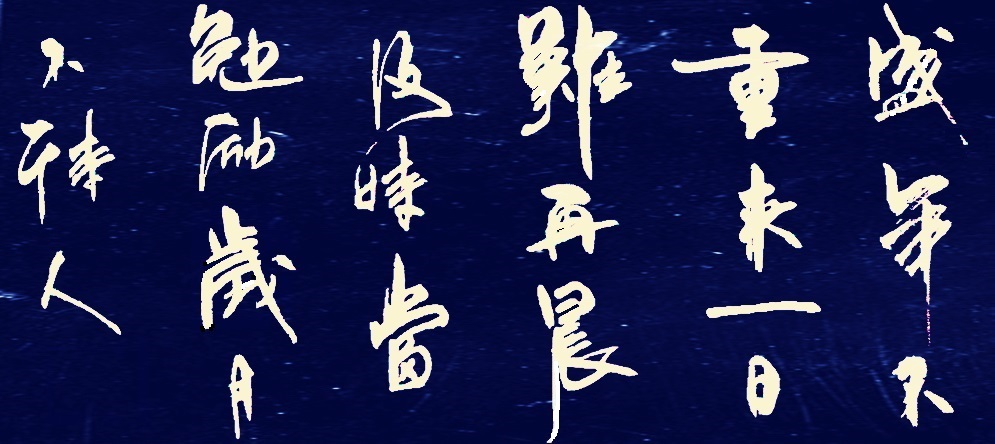 盛年不
重来一日
難再晨
及時當
勉励歲月
不待人